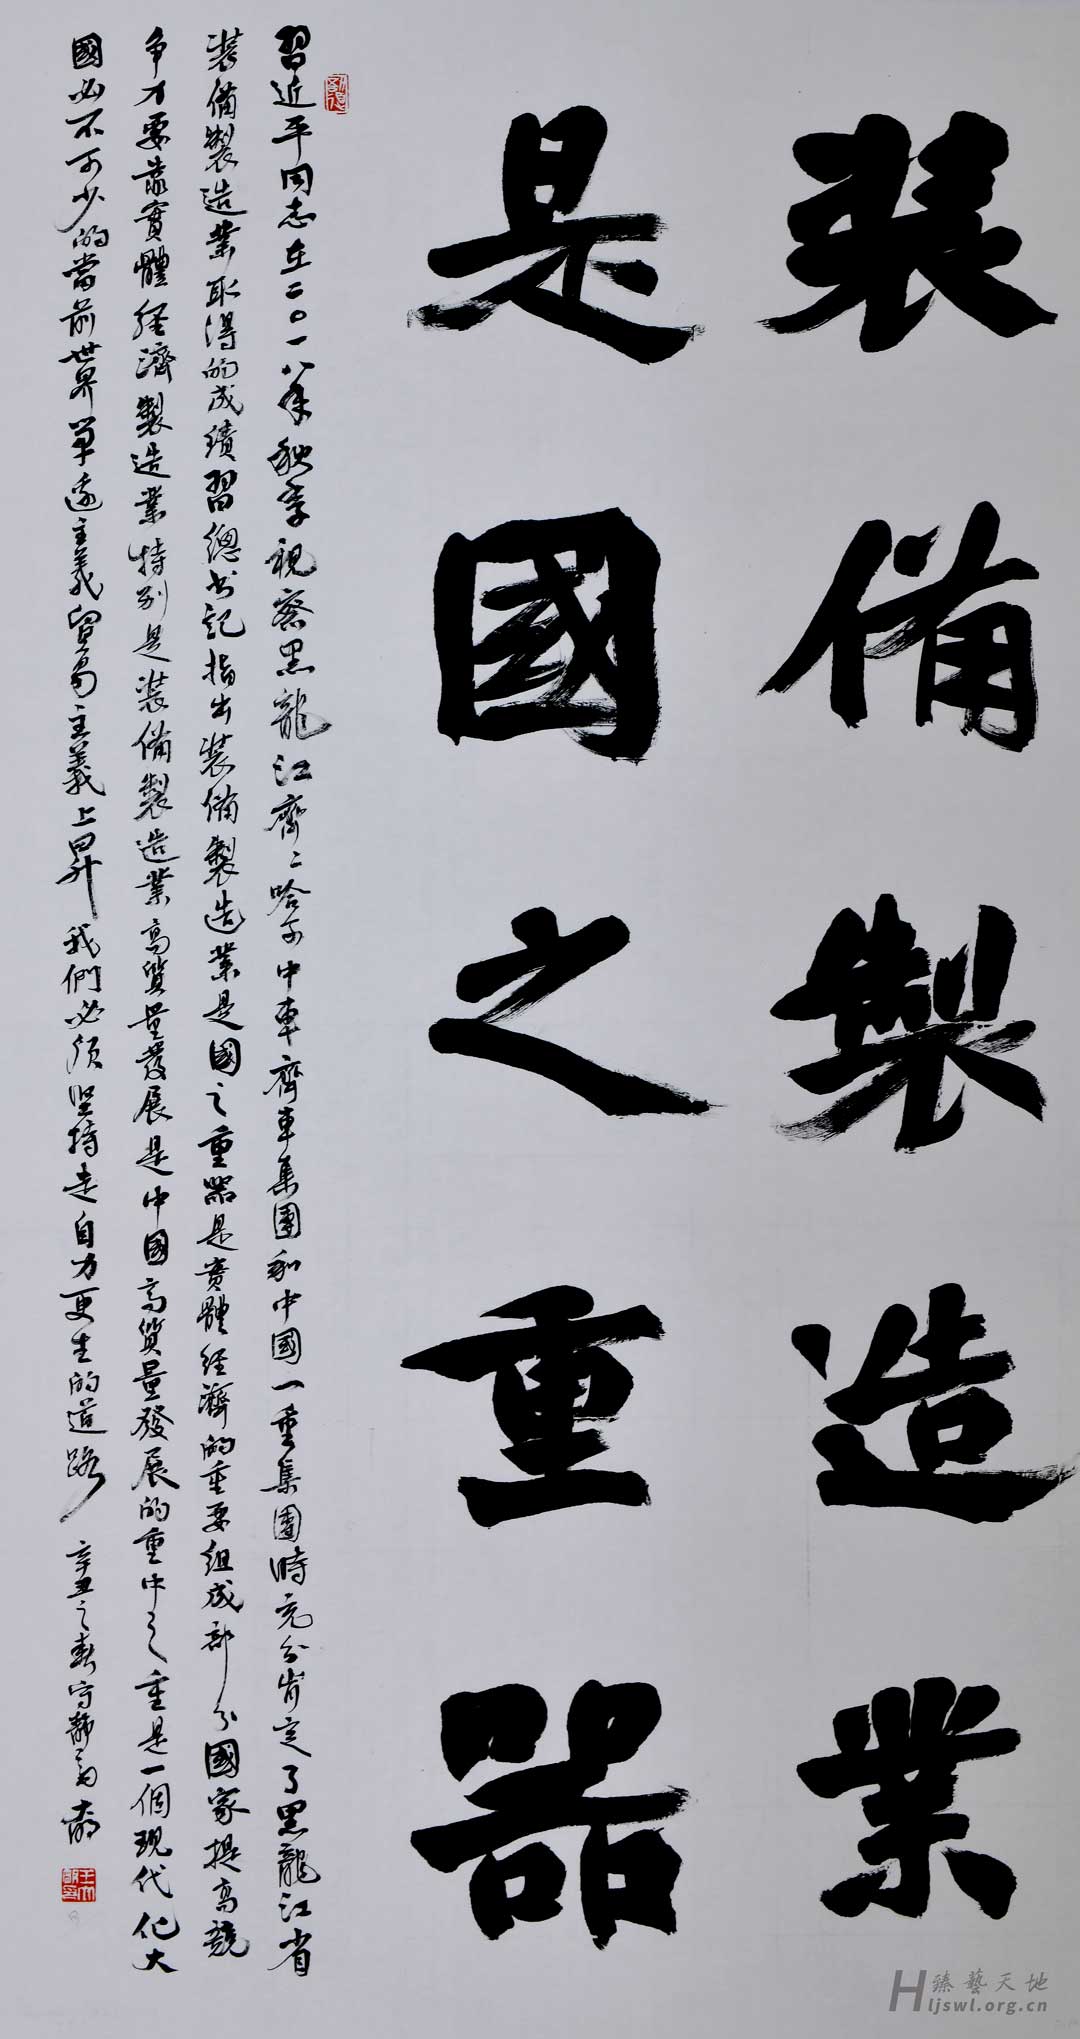 裝備製造業
是國之重器
習近平同志在二〇一八年秋季視察黑龍江齊二哈爾中車齊車集團和中國一重集團時充分肯定了黑龍江省
裝備製造業取得的成績習總書記指出裝備製造業是國之重器是實體經濟的重要組成部分國家提高競
争力要靠實體經濟製造業特别是裝備製造業高質量發展是中國高質量發展的重中之重是一個現代化大
國必不可少的當前世界單邊主義貿易主義上昇我們必須堅持走自力更生的道路
辛丑之春守静
臻藝天地
Hljswl.org.cn